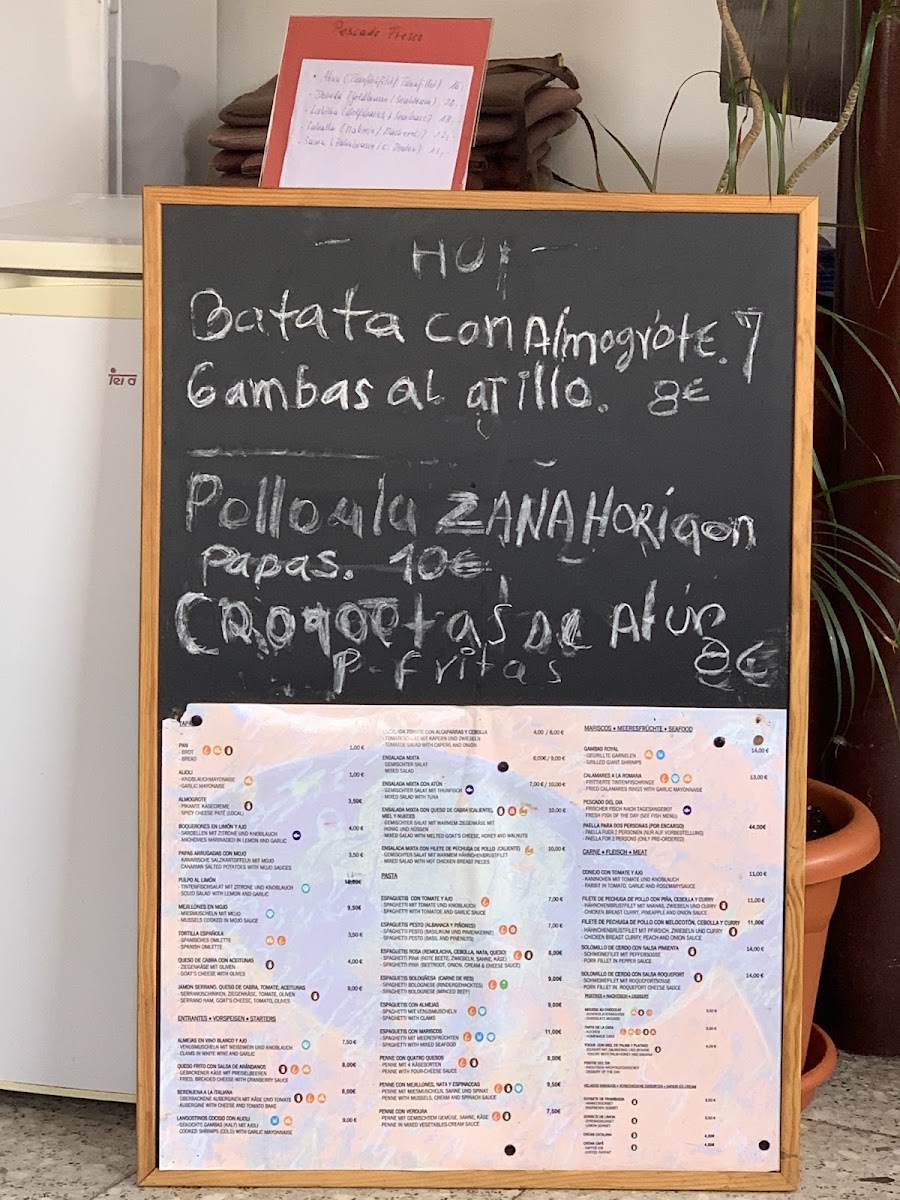 Pescado Fresco
HOY
Batata con Almogrote. 7
Gambas al ajillo. 8€
Pollo a la ZANAHORia con
papas. 10€
CROQUETas De Atún
P-Fritas 8€
PAN 1,00 €
- BROT
- BREAD
ALIOLI 1,00 €
- KNOBLAUCHMAYONNAISE
- GARLIC MAYONNAISE
ALMOGROTE 3,50€
- PIKANTE KÄSECREME
- SPICY CHEESE PATÉ (LOCAL)
BOQUERONES EN LIMÓN Y AJO 4,00 €
- SARDELLEN MIT ZITRONE UND KNOBLAUCH
- ANCHOVIES MARINADED IN LEMON AND GARLIC
PAPAS ARRUGADAS CON MOJO 3,50 €
- KANARISCHE SALZKARTOFFELN MIT MOJO
- CANARIAN SALTED POTATOES WITH MOJO SAUCES
PULPO AL LIMÓN
- TINTENFISCHSALAT MIT ZITRONE UND KNOBLAUCH
- SQUID SALAD WITH LEMON AND GARLIC
MEJILLONES EN MOJO 9,50€
- MIESMUSCHELN MIT MOJO
- MUSSELS COOKED IN MOJO SAUCE
TORTILLA ESPAÑOLA 3,50 €
- SPANISCHES OMLETTE
- SPANISH OMLETTE
QUESO DE CABRA CON ACEITUNAS 4,00 €
- ZIEGENKÄSE MIT OLIVEN
- GOAT'S CHEESE WITH OLIVES
JAMON SERRANO, QUESO DE CABRA, TOMATE, ACEITUNAS 9,00 €
- SERRANOSCHINKEN, ZIEGENKÄSE, TOMATE, OLIVEN
- SERRANO HAM, GOAT'S CHEESE, TOMATO, OLIVES
ENTRANTES • VORSPEISEN • STARTERS
ALMEJAS EN VINO BLANCO Y AJO 7,50 €
- VENUSMUSCHELN MIT WEISSWEIN UND KNOBLAUCH
- CLAMS IN WHITE WINE AND GARLIC
QUESO FRITO CON SALSA DE ARÁNDANOS 8,00€
- GEBACKENER KÄSE MIT PREISELBEEREN
- FRIED, BREADED CHEESE WITH CRANBERRY SAUCE
8,00€
- ÜBERBACKENE AUBERGINEN MIT KÄSE UND TOMATE
AUBERGINE WITH CHEESE AND TOMATO BAKE
LANGOSTINOS COCIDO CON ALIOLI 9,00 €
- GEKOCHTE GAMBAS (KALT) MIT AIOLI
- COOKED SHRIMPS (COLD) WITH GARLIC MAYONNAISE
ENSALADA TOMATE CON ALCAPARRAS Y CEBOLLA 4,00 / 6,00 €
- TOMATENSALAT MIT KAPERN UND ZWIEBELN
- TOMATOE SALAD WITH CAPERS AND ONION
ENSALADA MIXTA 6,00€ / 9,00 €
- GEMISCHTER SALAT
MIXED SALAD
ENSALADA MIXTA CON ATÚN 7,00 € / 10,00 €
- GEMISCHTER SALAT MIT THUNFISCH
- MIXED SALAD WITH TUNA
ENSALADA MIXTA CON QUESO DE CABRA (CALIENTE), 10,00 €
MIEL Y NUECES
- GEMISCHTER SALAT MIT WARMEM ZIEGENKÄSE MIT
HONIG UND NÜSSEN
- MIXED SALAD WITH MELTED GOAT'S CHEESE, HONEY AND WALNUTS
ENSALADA MIXTA CON FILETE DE PECHUGA DE POLLO (CALIENTE) 10,00 €
- GEMISCHTER SALAT MIT WARMEM HÄHNCHENBRUSTFILET
- MIXED SALAD WITH HOT CHICKEN BREAST PIECES
PASTA
ESPAGUETIS CON TOMATE Y AJO 7,00 €
- SPAGHETTI MIT TOMATE UND KNOBLAUCH
- SPAGHETTI WITH TOMATOE AND GARLIC SAUCE
ESPAGUETIS PESTO (ALBAHACA Y PIÑONES) 7,00 €
- SPAGHETTI PESTO (BASILIKUM UND PINIENKERNE)
- SPAGHETTI PESTO (BASIL AND PINENUTS)
ESPAGUETIS ROSA (REMOLACHA, CEBOLLA, NATA, QUESO) 8,00€
- SPAGHETTI PINK (ROTE BEETE, ZWIEBELN, SAHNE, KÄSE)
- SPAGHETTI PINK (BEETROOT, ONION, CREAM & CHEESE SAUCE)
ESPAGUETIS BOLOGÑESA (CARNE DE RES) 9,00€
- SPAGHETTI BOLOGNESE (RINDERGEHACKTES)
- SPAGHETTI BOLOGNESE (MINCED BEEF)
ESPAGUETIS CON ALMEJAS 9,00€
- SPAGHETTI MIT VENUSMUSCHELN
- SPAGHETTI WITH CLAMS
ESPAGUETIS CON MARISCOS 11,00€
- SPAGHETTI MIT MEERESFRÜCHTEN
- SPAGHETTI WITH MIXED SEAFOOD
PENNE CON QUATRO QUESOS 8,00€
- PENNE MIT 4 KÄSESORTEN
- PENNE WITH FOUR-CHEESE SAUCE
PENNE CON MEJILLONES, NATA Y ESPINACCAS 9,50€
- PENNE MIT MIESMUSCHELN, SAHNE UND SPINAT
- PENNE WITH MUSSELS, CREAM AND SPINACH SAUCE
PENNE CON VERDURA 7,50€
- PENNE MIT GEMISCHTEM GEMÜSE, SAHNE, KÄSE
PENNE IN MIXED VEGETABLES-CREAM SAUCE
MARISCOS • MEERESFRÜCHTE • SEAFOOD
GAMBAS ROYAL 14,00 €
- GEGRILLTE GARNELEN
- GRILLED GIANT SHRIMPS
CALAMARES A LA ROMANA 13,00 €
- FRITTIERTE TINTENFISCHRINGE
- FRIED CALAMARES RINGS WITH GARLIC MAYONNAISE
PESCADO DEL DIA
- FRISCHER FISCH NACH TAGESANGEBOT
- FRESH FISH OF THE DAY (SEE FISH MENU)
PAELLA PARA DOS PERSONAS (POR ENCARGO) 44,00€
- PAELLA FUER 2 PERSONEN (NUR AUF VORBESTELLUNG)
- PAELLA FOR 2 PERSONS (ONLY PRE-ORDERED)
CARNE • FLEISCH • MEAT
CONEJO CON TOMATE Y AJO 11,00 €
- KANINCHEN MIT TOMATE UND KNOBLAUCH
- RABBIT IN TOMATO, GARLIC AND ROSEMARYSAUCE
FILETE DE PECHUGA DE POLLO CON PIÑA, CEBOLLA Y CURRY 11,00 €
- HÄHNCHENBRUSTFILET MIT ANANAS, ZWIEBELN UND CURRY
- CHICKEN BREAST CURRY, PINEAPPLE AND ONION SAUCE
FILETE DE PECHUGA DE POLLO CON MELOCOTÓN, CEBOLLA Y CURRY 11,00€
- HÄHNCHENBRUSTFILET MIT PFIRSICH, ZWIEBELN UND CURRY
- CHICKEN BREAST CURRY, PEACH AND ONION SAUCE
SOLOMILLO DE CERDO CON SALSA PIMIENTA 14,00 €
- SCHWEINEFILET MIT PFEFFERSOSSE
- PORK FILLET IN PEPPER SAUCE
SOLOMILLO DE CERDO CON SALSA ROQUEFORT 14,00 €
- SCHWEINEFILET MIT ROQUEFORTSOSSE
- PORK FILLET IN ROQUEFORT CHEESE SAUCE
POSTRES • NACHTISCH • DESSERT
MOUSSE AU CHOCOLAT
TARTA DE LA CASA
CREMA CATALANA 4,00€